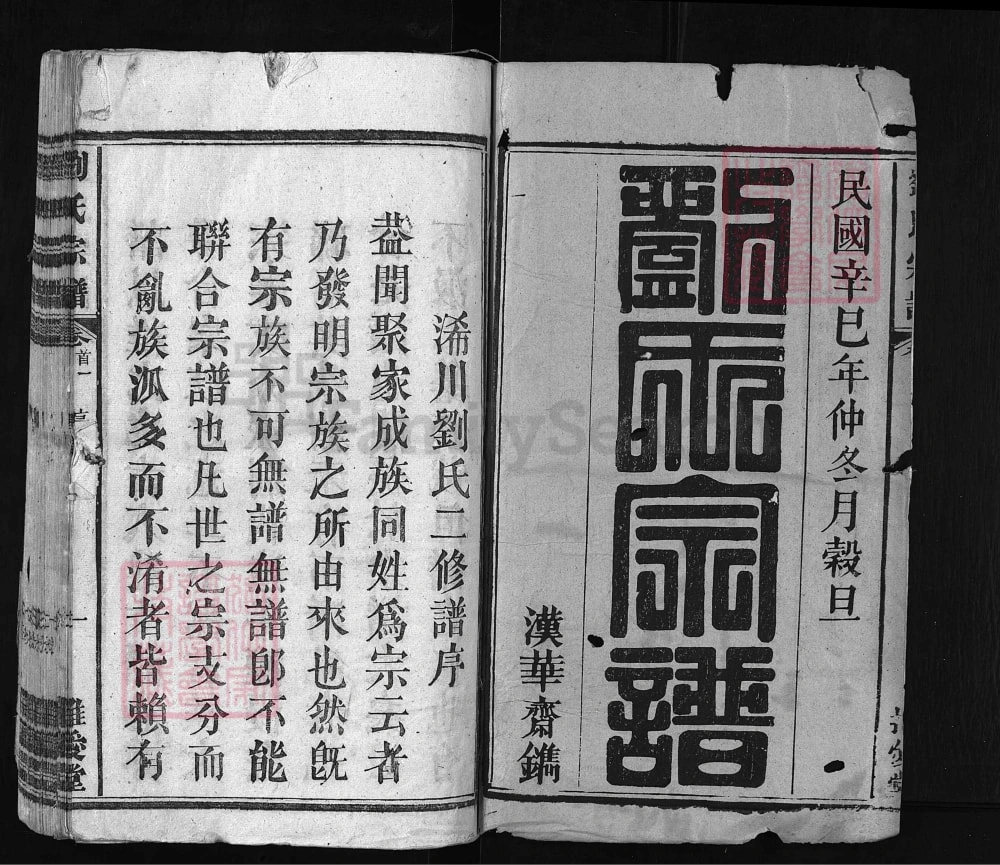 民國辛巳年仲冬月穀旦
劉氏宗譜
漢華齋鐫
浠川劉氏二修譜序
葢聞聚家成族同姓爲宗云者
乃發明宗族之所由來也然旣
有宗族不可無譜無譜卽不能
聯合宗譜也凡世之宗支分而
不亂族派多而不淆者皆賴有
劉氏宗譜
卷首一
序
一
堂
FamilySearch